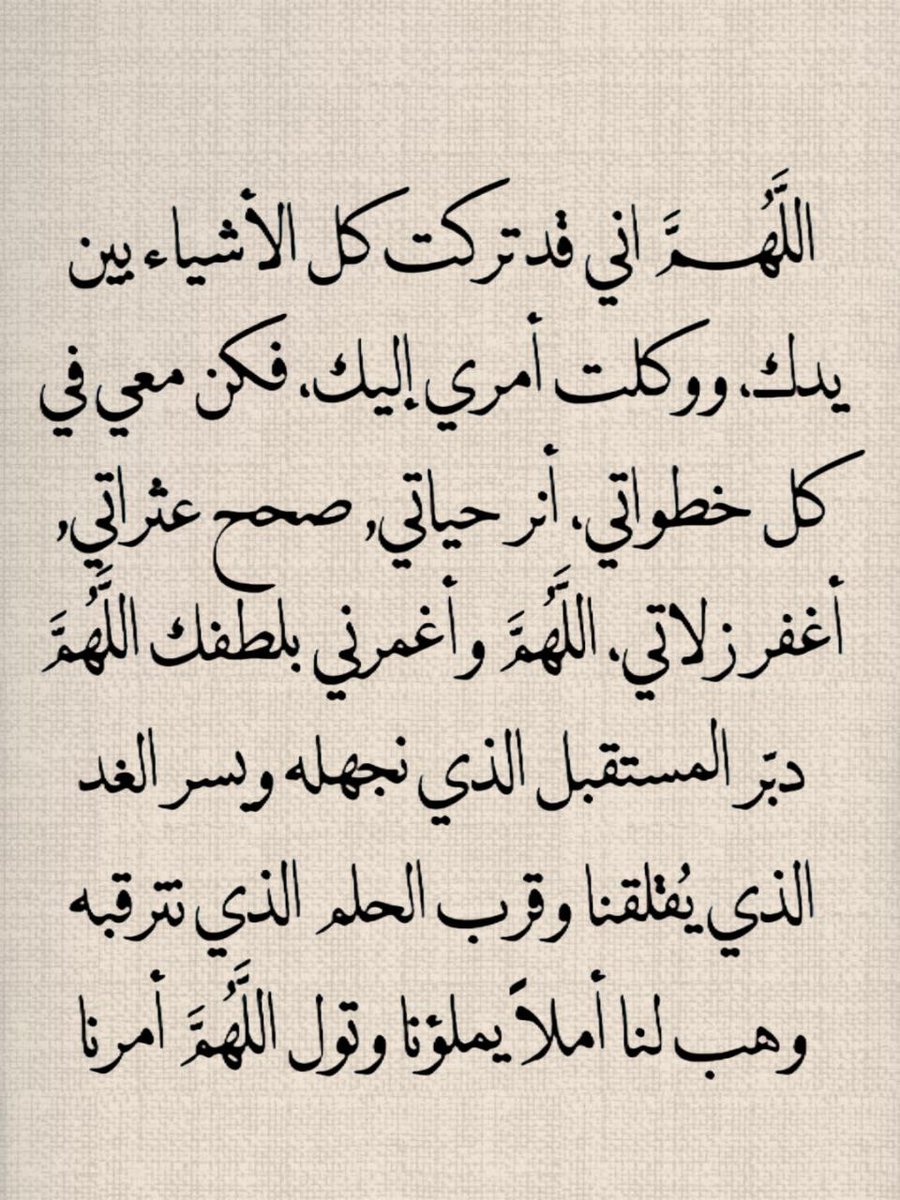 اللَّهُـــمَّ اني قد تركت كل الأشياء بين
يدك، ووكلت أمري إليك، فكن معي في
كل خطواتي، أنر حياتي, صحح عثراتي,
أغفر زلاتي، اللَّهُمَّ وأغمرني بلطفك اللَّهُمَّ
دبّر المستقبل الذي نجهله ويسر الغد
الذي يُقلقنا وقرب الحلم الذي نترقبه
وهب لنا أملاً يملؤنا وتول اللَّهُمَّ أمرنا